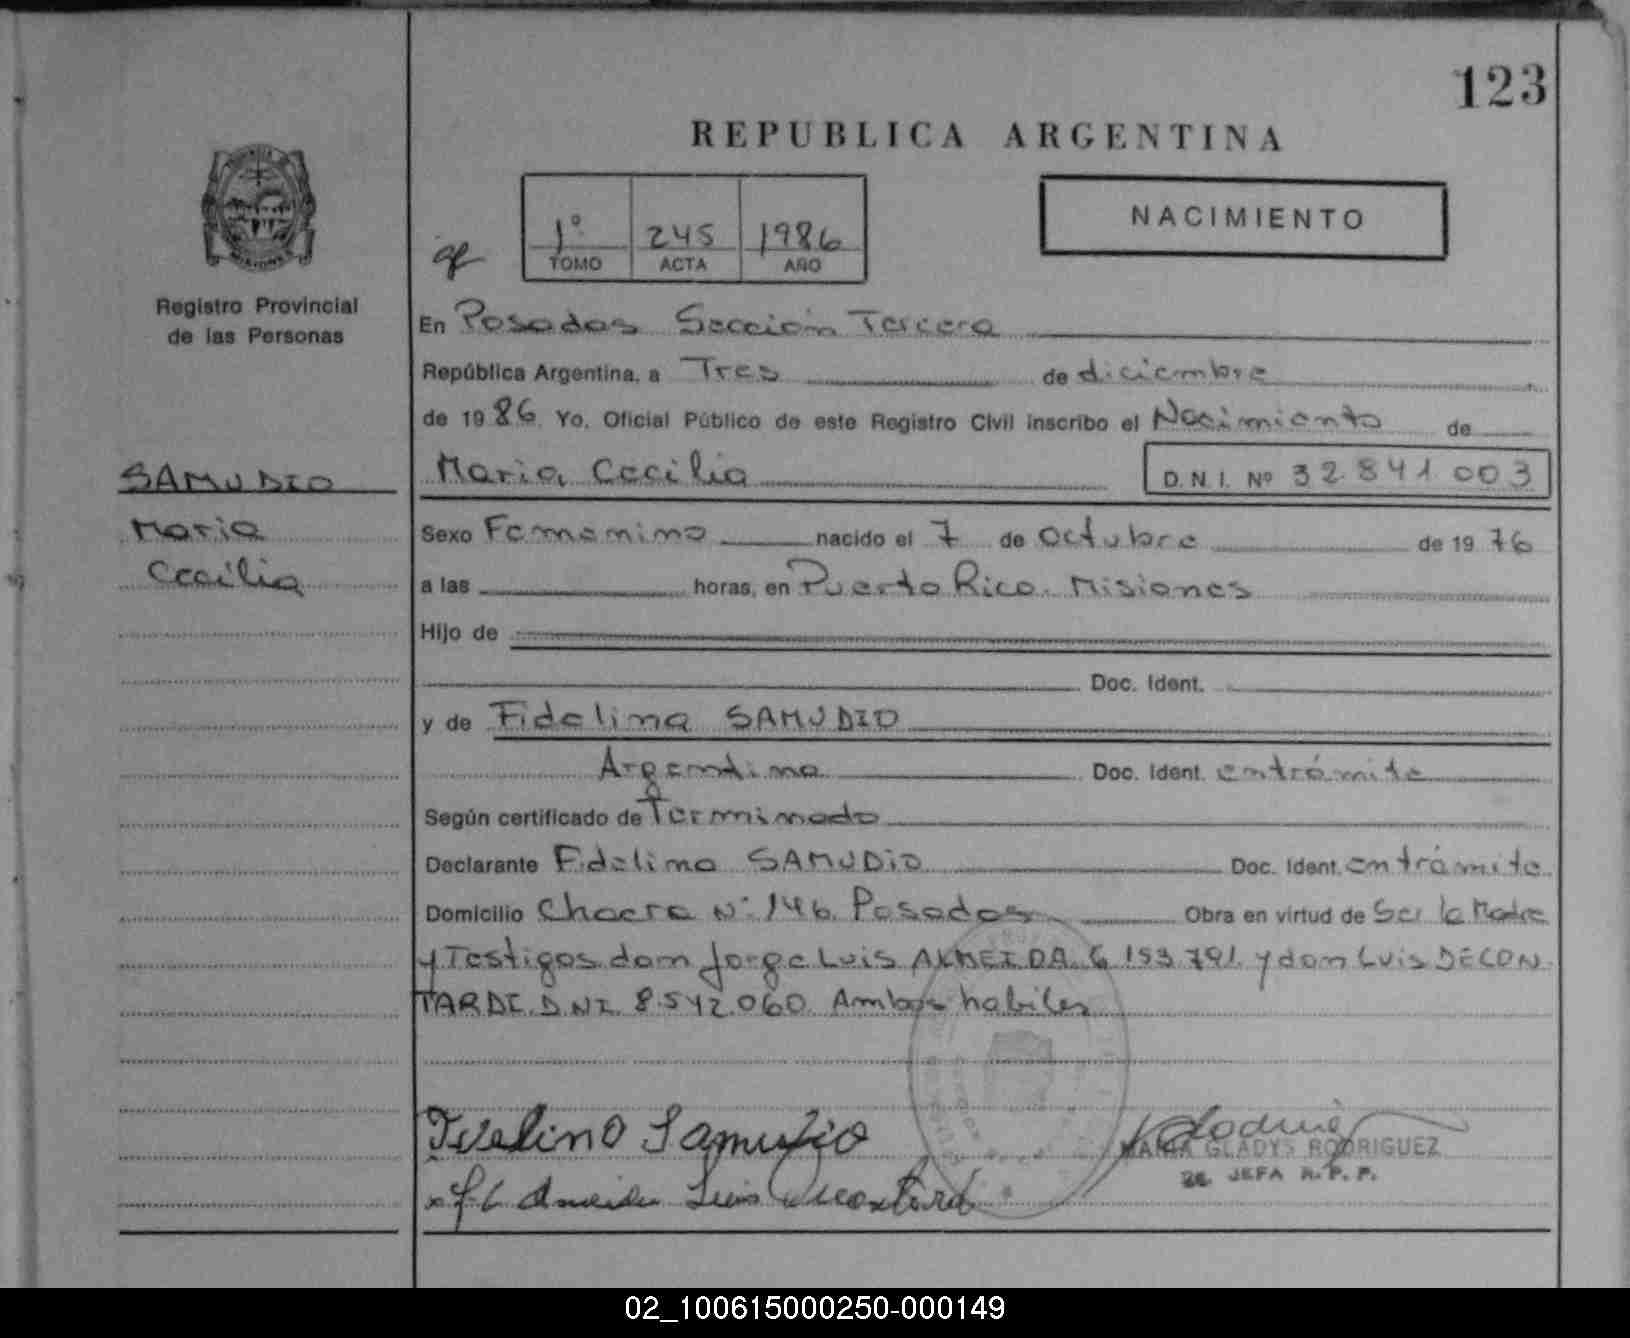 123
REPUBLICA ARGENTINA
1° 245 1986
TOMO ACTA AÑO
NACIMIENTO
Registro Provincial
de las Personas
En Posadas Sección Tercera
República Argentina, a Tres de diciembre
de 1986. Yo, Oficial Público de este Registro Civil inscribo el Nacimiento de
SAMUDIO
Maria Cecilia D.N.I. Nº 32.841.003
Maria
Sexo Femenino nacido el 7 de octubre de 1976
Cecilia
a las horas, en Puerto Rico. Misiones
Hijo de
Doc. Ident.
y de Fidelina SAMUDIO
Argentina Doc. Ident. entrámite
Según certificado de Terminado
Declarante Fidelina SAMUDIO Doc. Ident. entrámite
Domicilio Chacra Nº 146. Posadas Obra en virtud de Ser la Madre
y Testigos don Jorge Luis ALMEIDA 6.153.791. y don Luis DECON
TARDE. D.N.I. 8.542.060. Ambos habiles
Samudio
Luis
MARIA GLADYS RODRIGUEZ
JEFA R.P.P.
02_100615000250-000149